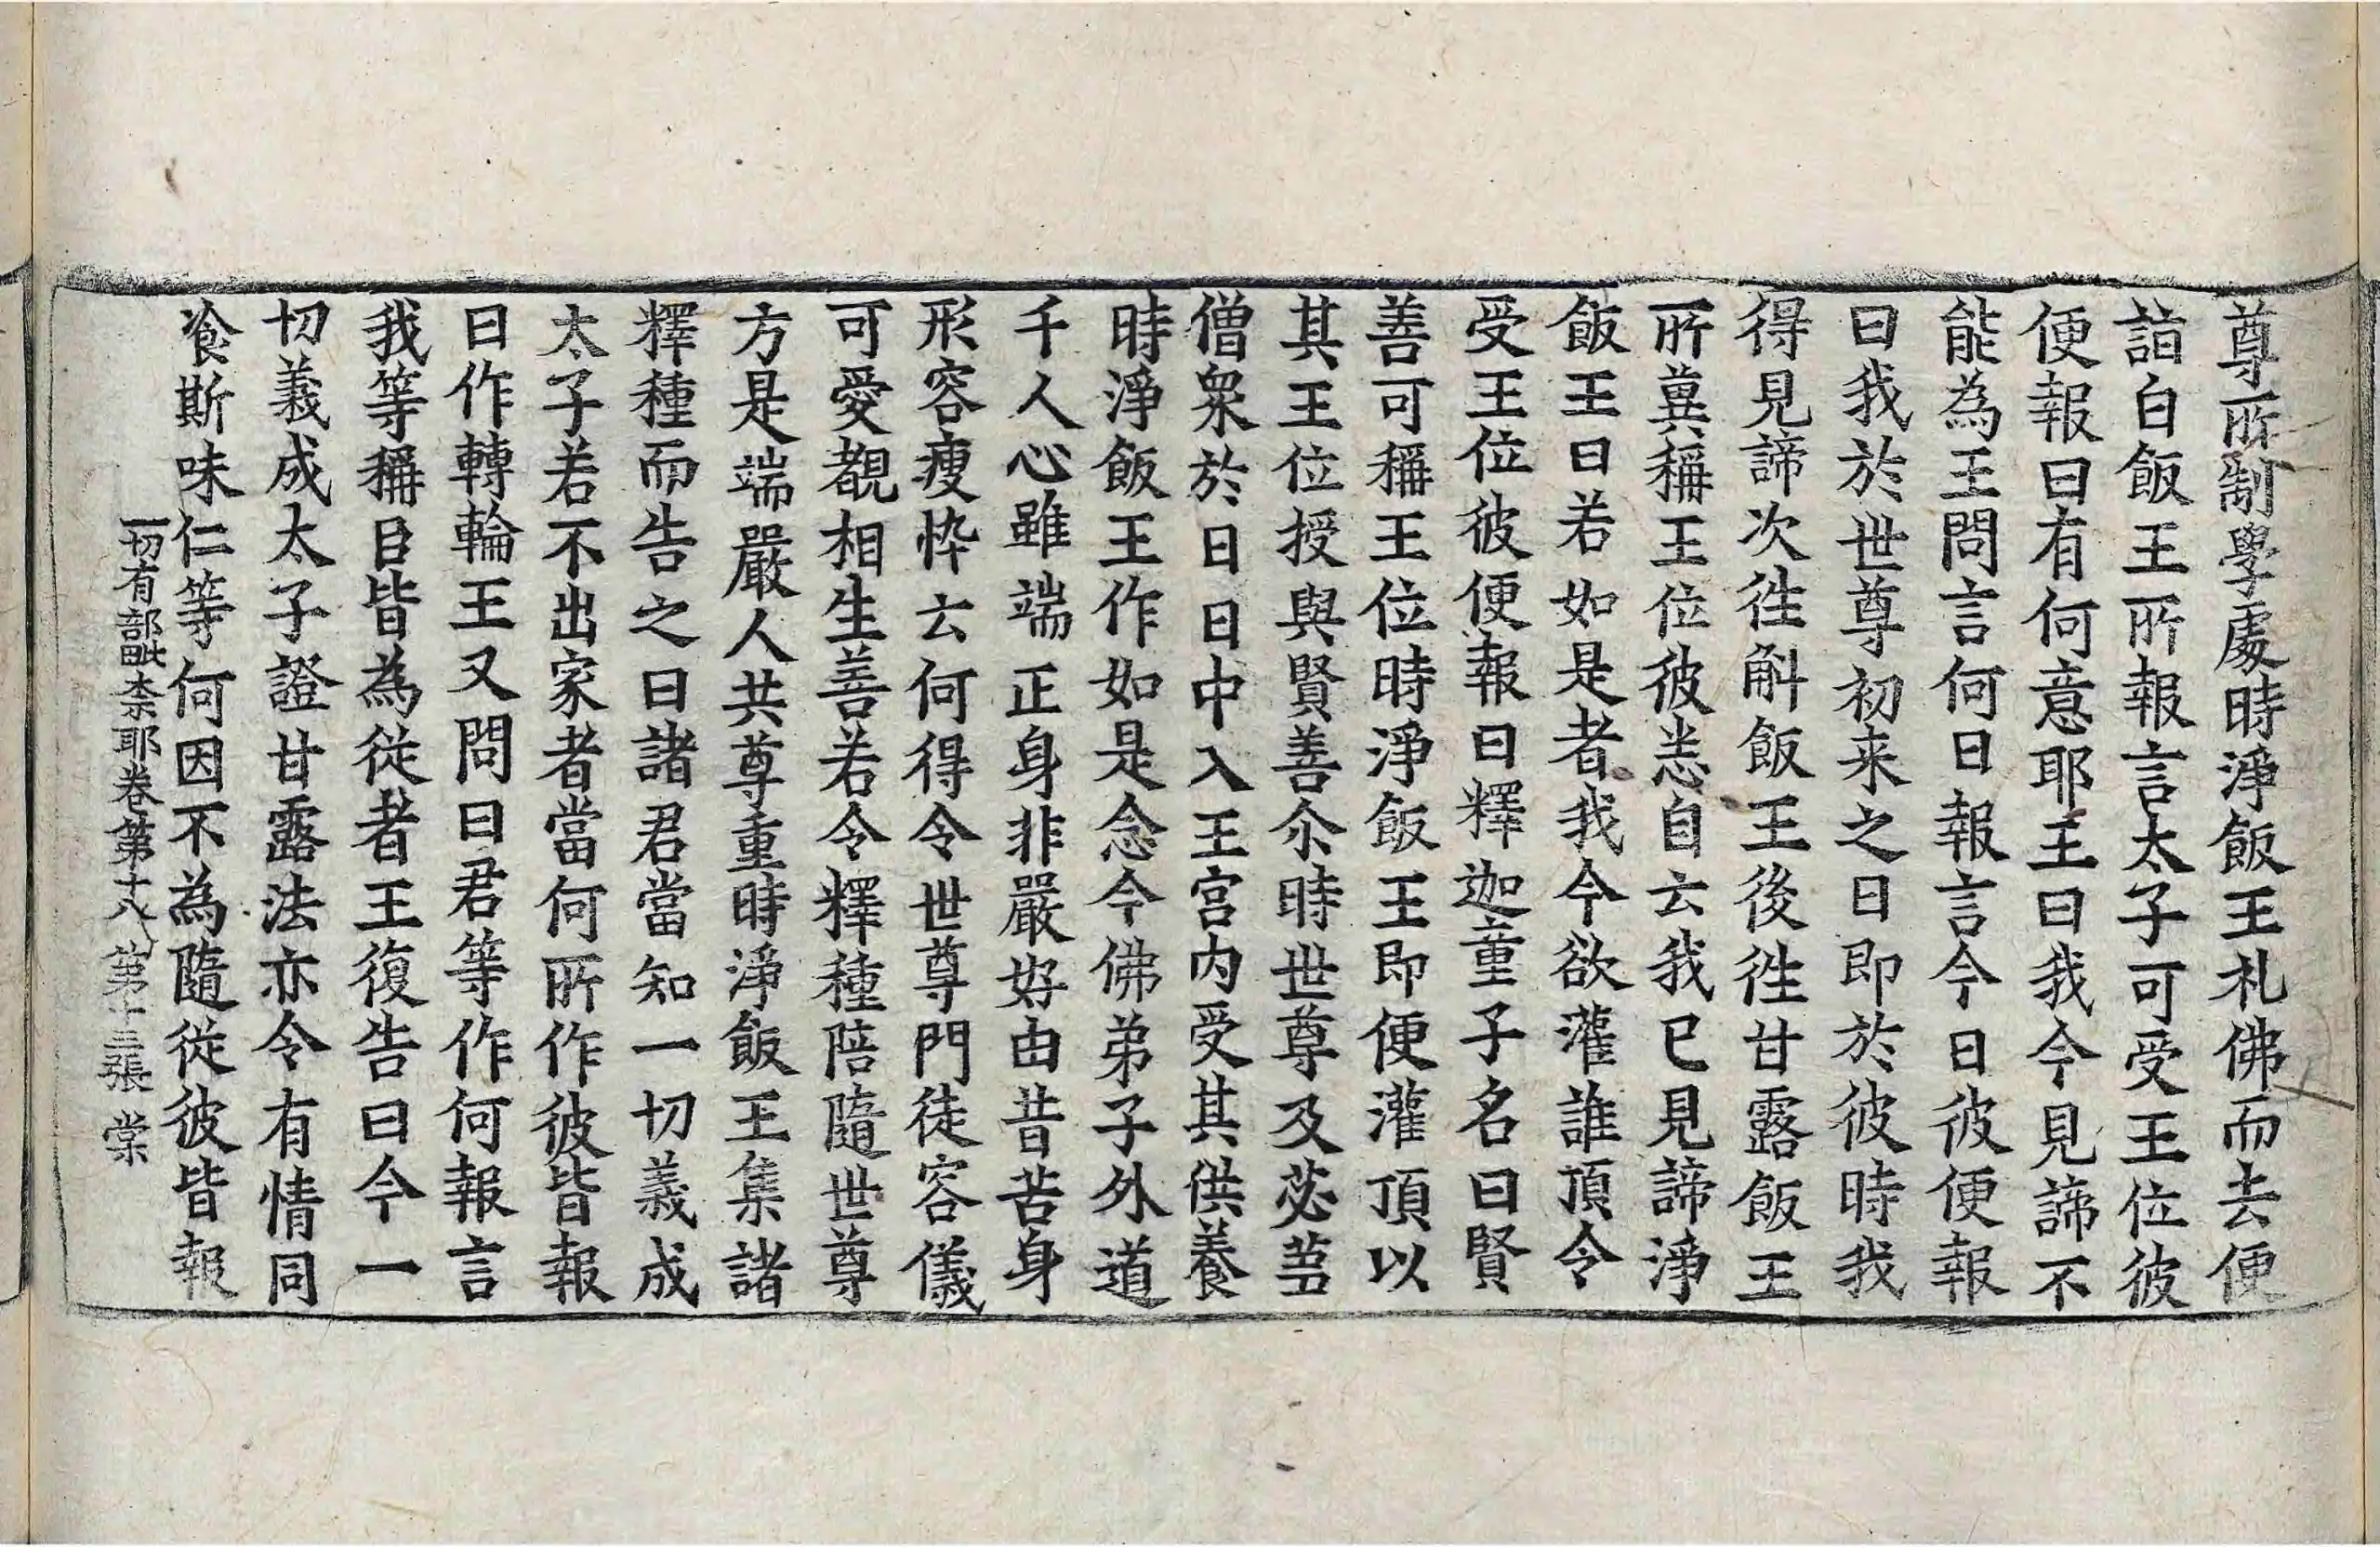 尊所制學處時淨飯王札佛而去便
詣白飯王所報言太子可受王位彼
便報曰有何意耶王曰我今見諦不
能為王問言何日報言今日彼便報
曰我於世尊初来之日即於彼時我
得見諦次徃斛飯王後徃甘露飯王
所冀稱王位彼悉自云我已見諦淨
飯王曰若如是者我今欲灌誰頂令
受王位彼便報曰釋迦童子名曰賢
善可稱王位時淨飯王即便灌頂以
其王位授與賢善尒時世尊及苾蒭
僧衆於日日中入王宫内受其供養
時淨飯王作如是念今佛弟子外道
千人心雖端正身非嚴好由昔苦身
形容瘦悴云何得令世尊門徒容儀
可愛覩相生善若令釋種陪隨世尊
方是端嚴人共尊重時淨飯王集諸
釋種而告之曰諸君當知一切義成
太子若不出家者當何所作彼皆報
曰作轉輪王又問曰君等作何報言
我等稱目皆為従者王復告曰今一
切義成太子證甘露法亦令有情同
飡斯味仁等何因不為隨従彼皆報
一切有部毗奈耶卷第十八　第十三張　棠